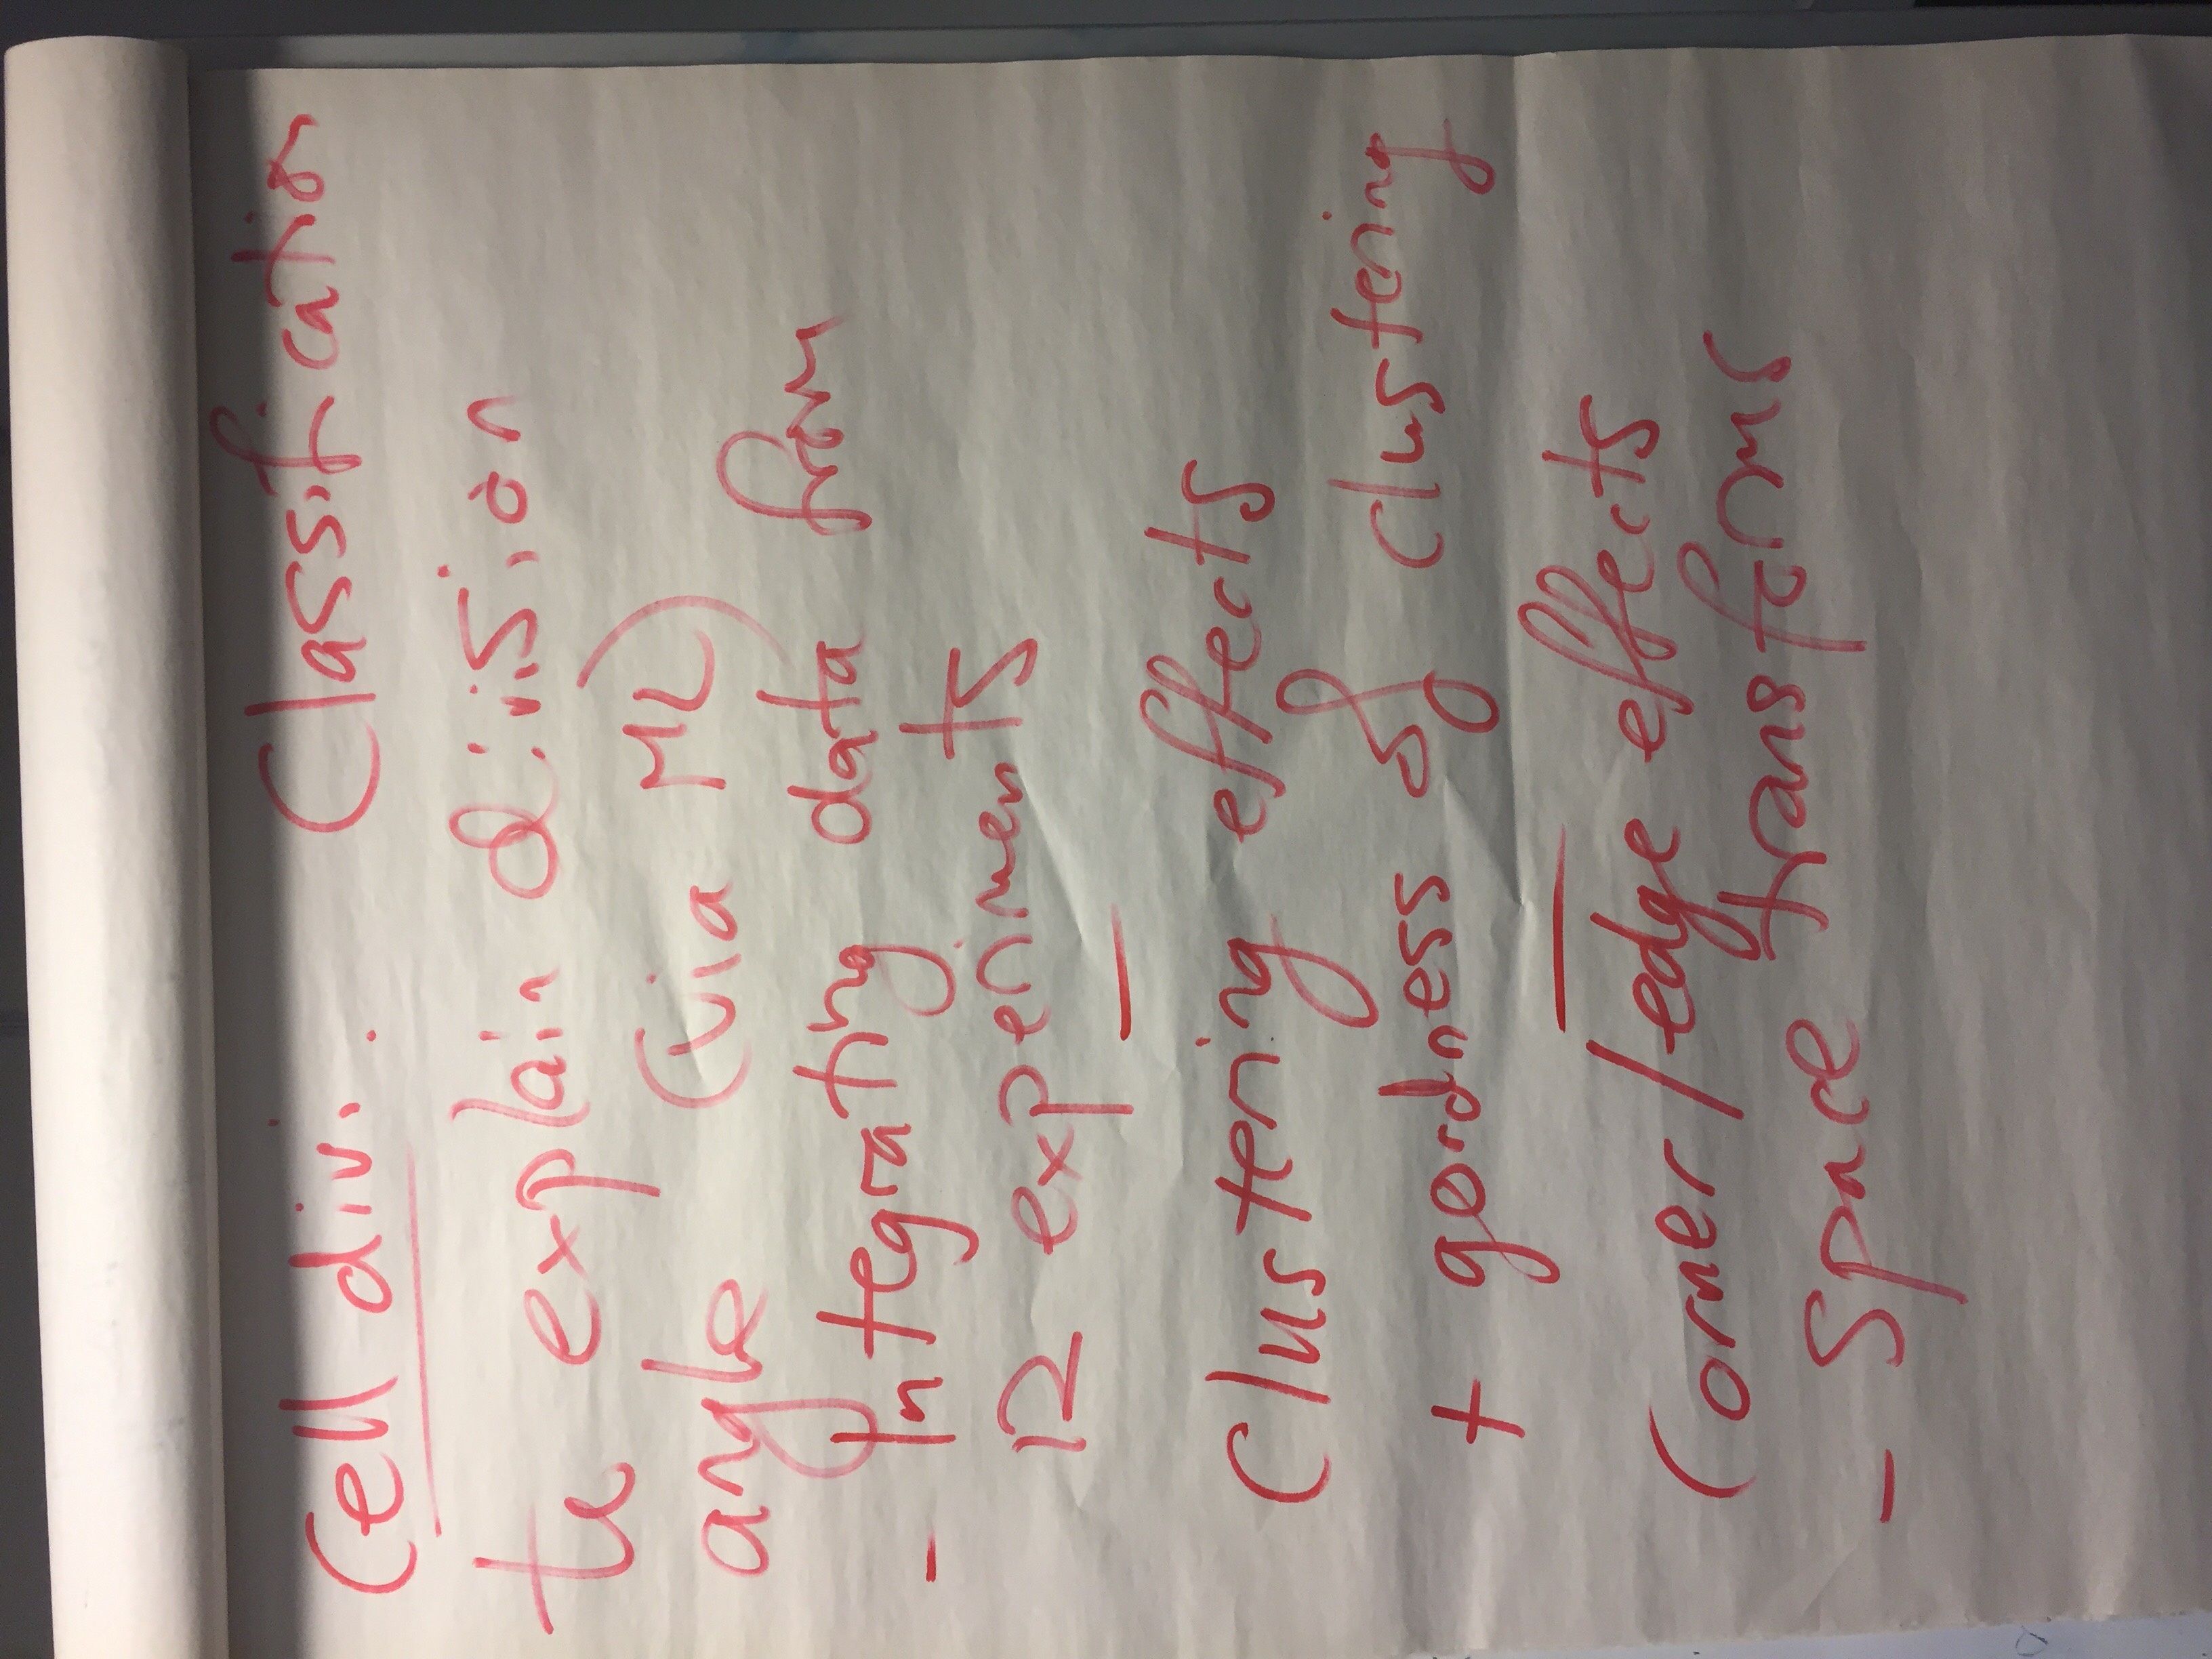 Cell div.: Classification
to explain division
angle (via ML)
- Integrating data from
12 experiments
—
Clustering effects
+ goodness of clustering
—
Corner/edge effects
- Space transforms